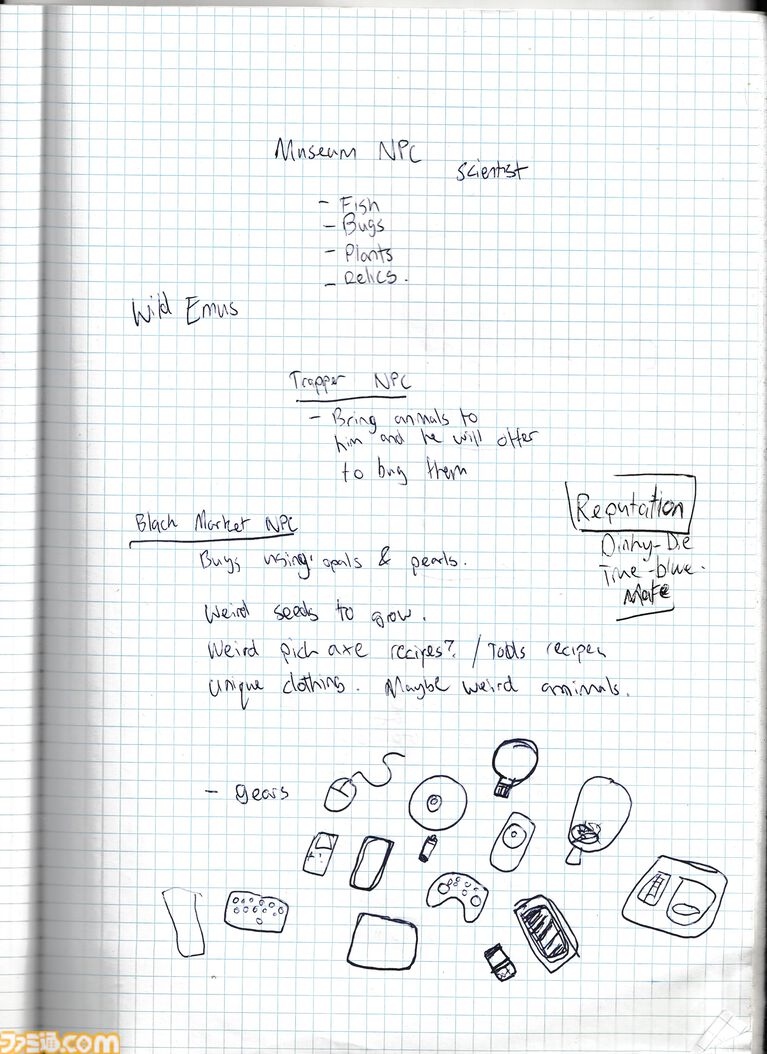 Museum NPC
scientist
- Fish
- Bugs
- Plants
- Relics.
Wild Emus
Trapper NPC
- Bring animals to
him and he will offer
to buy them
Black Market NPC
Buys using opals & pearls.
Weird seeds to grow.
Weird pick axe recipes? / Tools recipes
unique clothing. Maybe weird animals.
Reputation
Dinky-Die
True-blue.
Mate
- gears
ファミ通.com